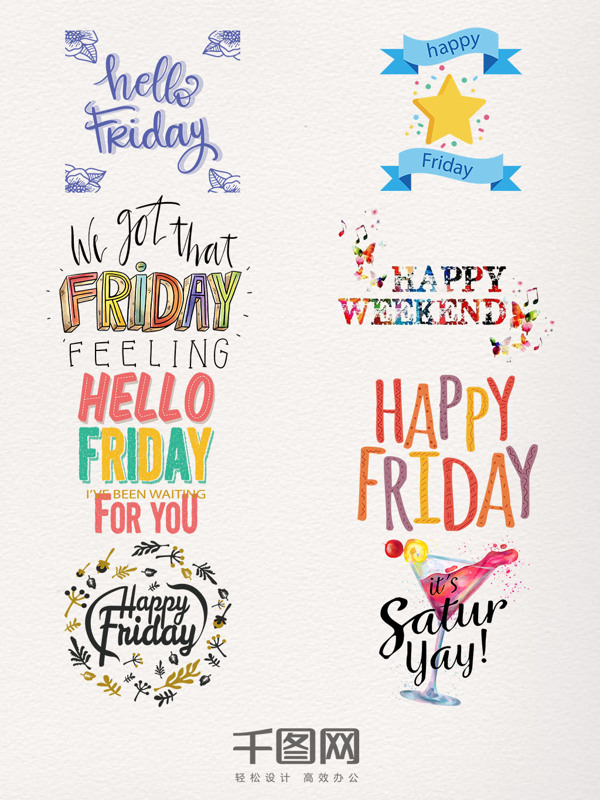 hello
Friday
happy
Friday
We got that
FRIDAY
FEELING
HAPPY
WEEKEND
HELLO
FRIDAY
I'VE BEEN WAITING
FOR YOU
HAPPY
FRIDAY
Happy
Friday
it's
Satur
Yay!
千图网
轻松设计 高效办公